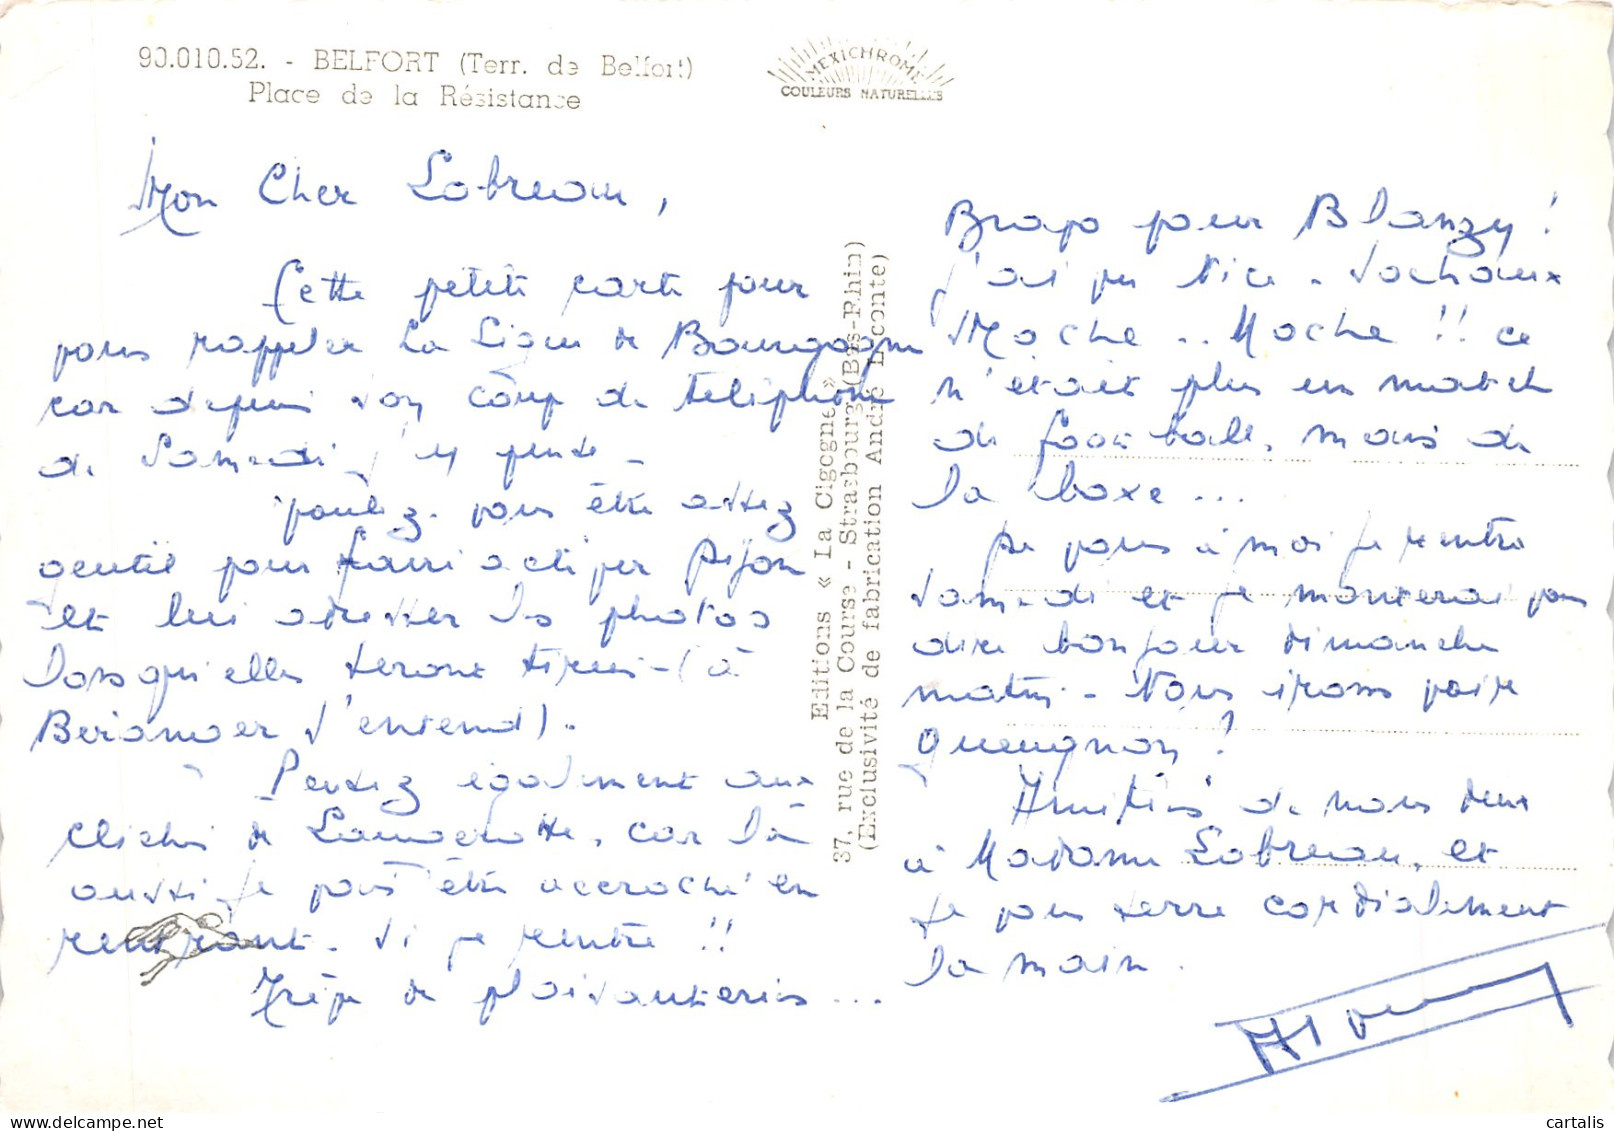 90.010.52. - BELFORT (Terr. de Belfort)
Place de la Résistance
MEXICHROME
COULEURS NATURELLES
Mon Cher Lobreau,
Cette petite carte pour
vous rappeler La Ligue de Bourgogne
car depuis son coup de téléphone
de Samedi j'y pense -
Voulez-vous être assez
gentil pour faire activer Dijon
et lui adresser les photos
lorsqu'elles seront tirées - (à
Beranger s'entend).
Pensez également aux
clichés de Lamoerotte, car là
aussi je vais être accroché en
rentrant - si je rentre !!
Trève de plaisanteries ...
Editions « La Cigogne »
37, rue de la Course - Strasbourg (Bas-Rhin)
(Exclusivité de fabrication André Leconte)
Bravo pour Blanzy !
J'ai vu Nice - Sochaux
Moche .. Moche !! ce
n'était plus un match
de foot-ball, mais de
la boxe ...
De vous à moi je rentre
samedi et je monterai vous
dire bonjour dimanche
matin - Nous irons voir
Gueugnon ?
Amitiés de nous deux
à Madame Lobreau, et
je vous serre cordialement
la main.
cartalis
www.delcampe.net